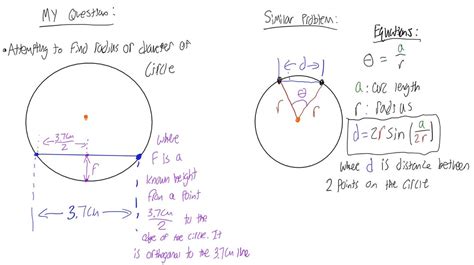 MY Question:
• Attempting to find radius or diameter of
Circle
3.7cm
2
F
3.7cm
where
F is a
known height
from a point
3.7cm
2
to the
edge of the circle. It
is orthogonal to the 3.7cm line
Similar Problem:
d
r
θ
r
Equations:
θ = a/r
a: arc length
r: radius
d = 2r sin(a/2r)
where d is distance between
2 points on the circle